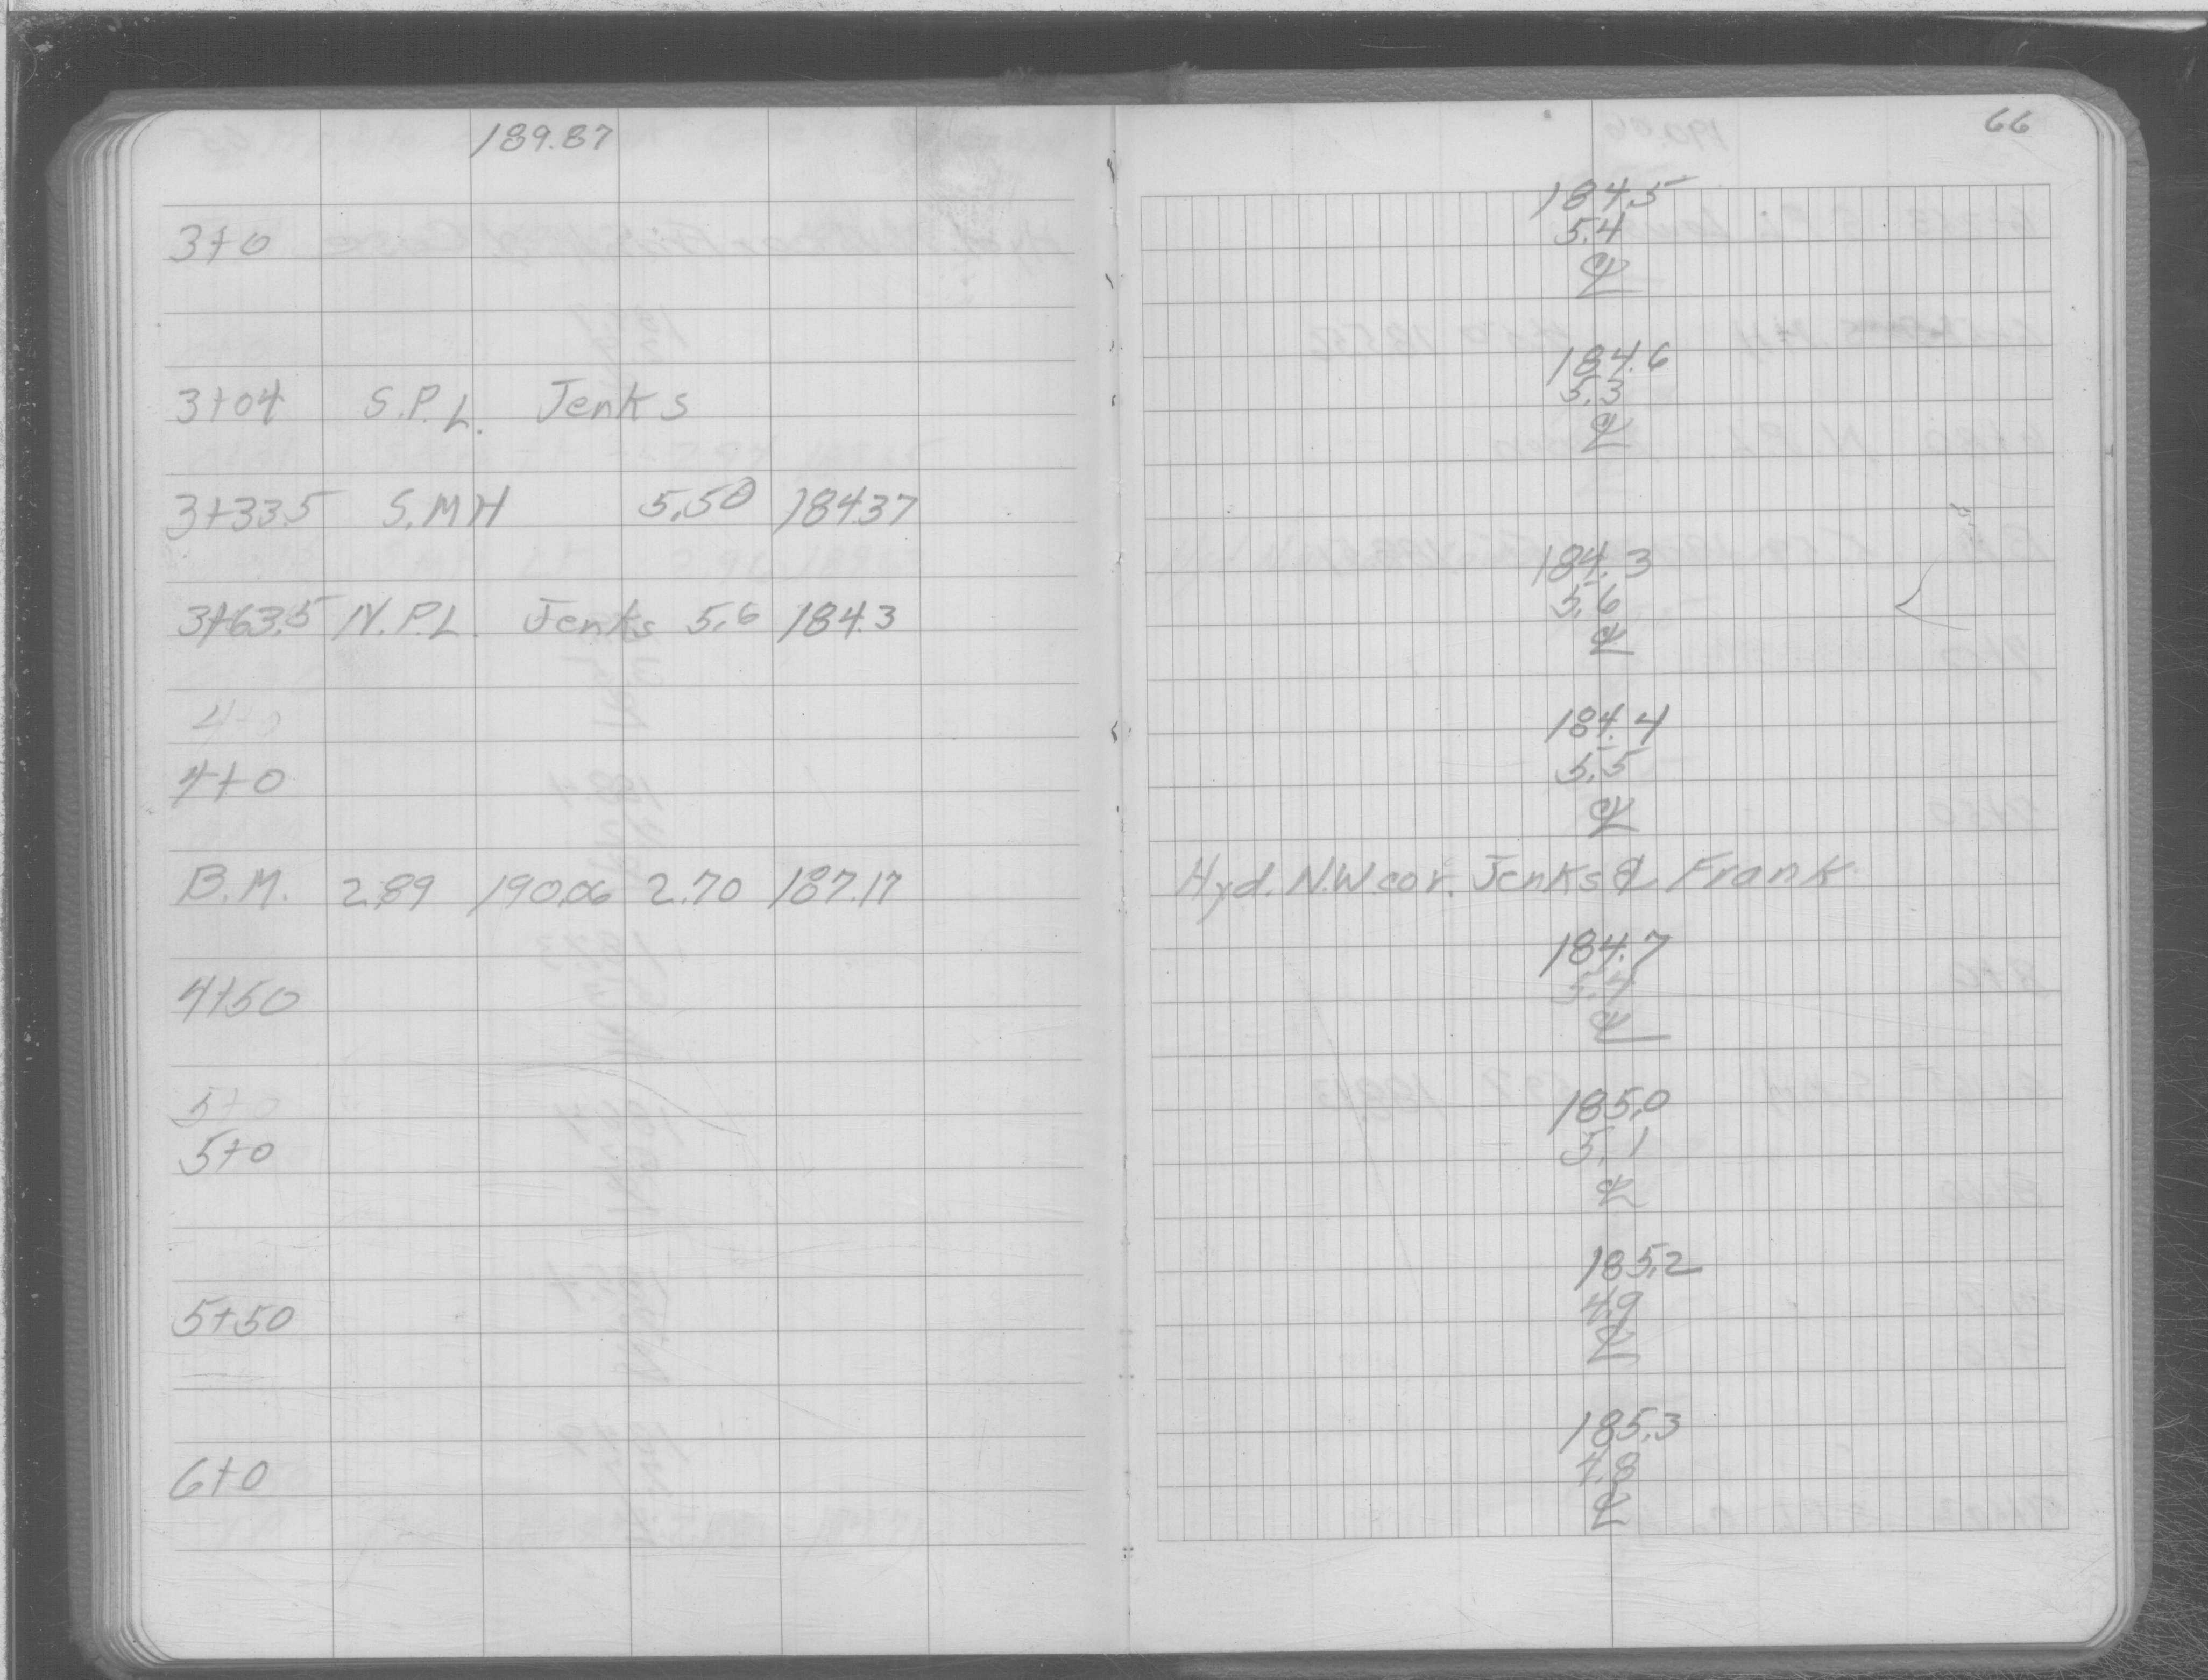 189.87
3+0
3+04 S.P.L. Jenks
3+33.5 S.MH 5.50 184.37
3+63.5 N.P.L. Jenks 5.6 184.3
4+0
4+0
B.M. 2.89 190.06 2.70 187.17
4+50
5+0
5+0
5+50
6+0
66
184.5
5.4
℄
184.6
5.3
℄
184.3
5.6
℄
184.4
5.5
℄
Hyd. N.W. cor. Jenks & Frank
184.7
5.4
℄
185.0
5.1
℄
185.2
4.9
℄
185.3
4.8
℄